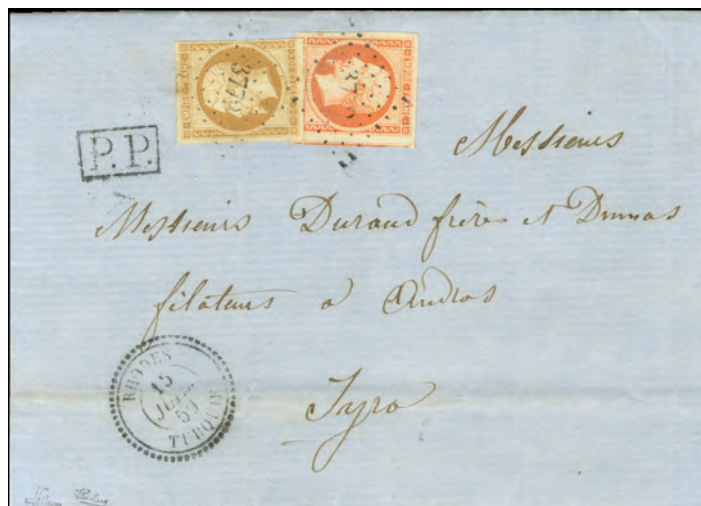 3779
37
P.P.
Messieurs
Messieurs Durand frères et Dumas
filateurs à Andros
Syra
RHODES
15
JUIL.
59
TURQUIE